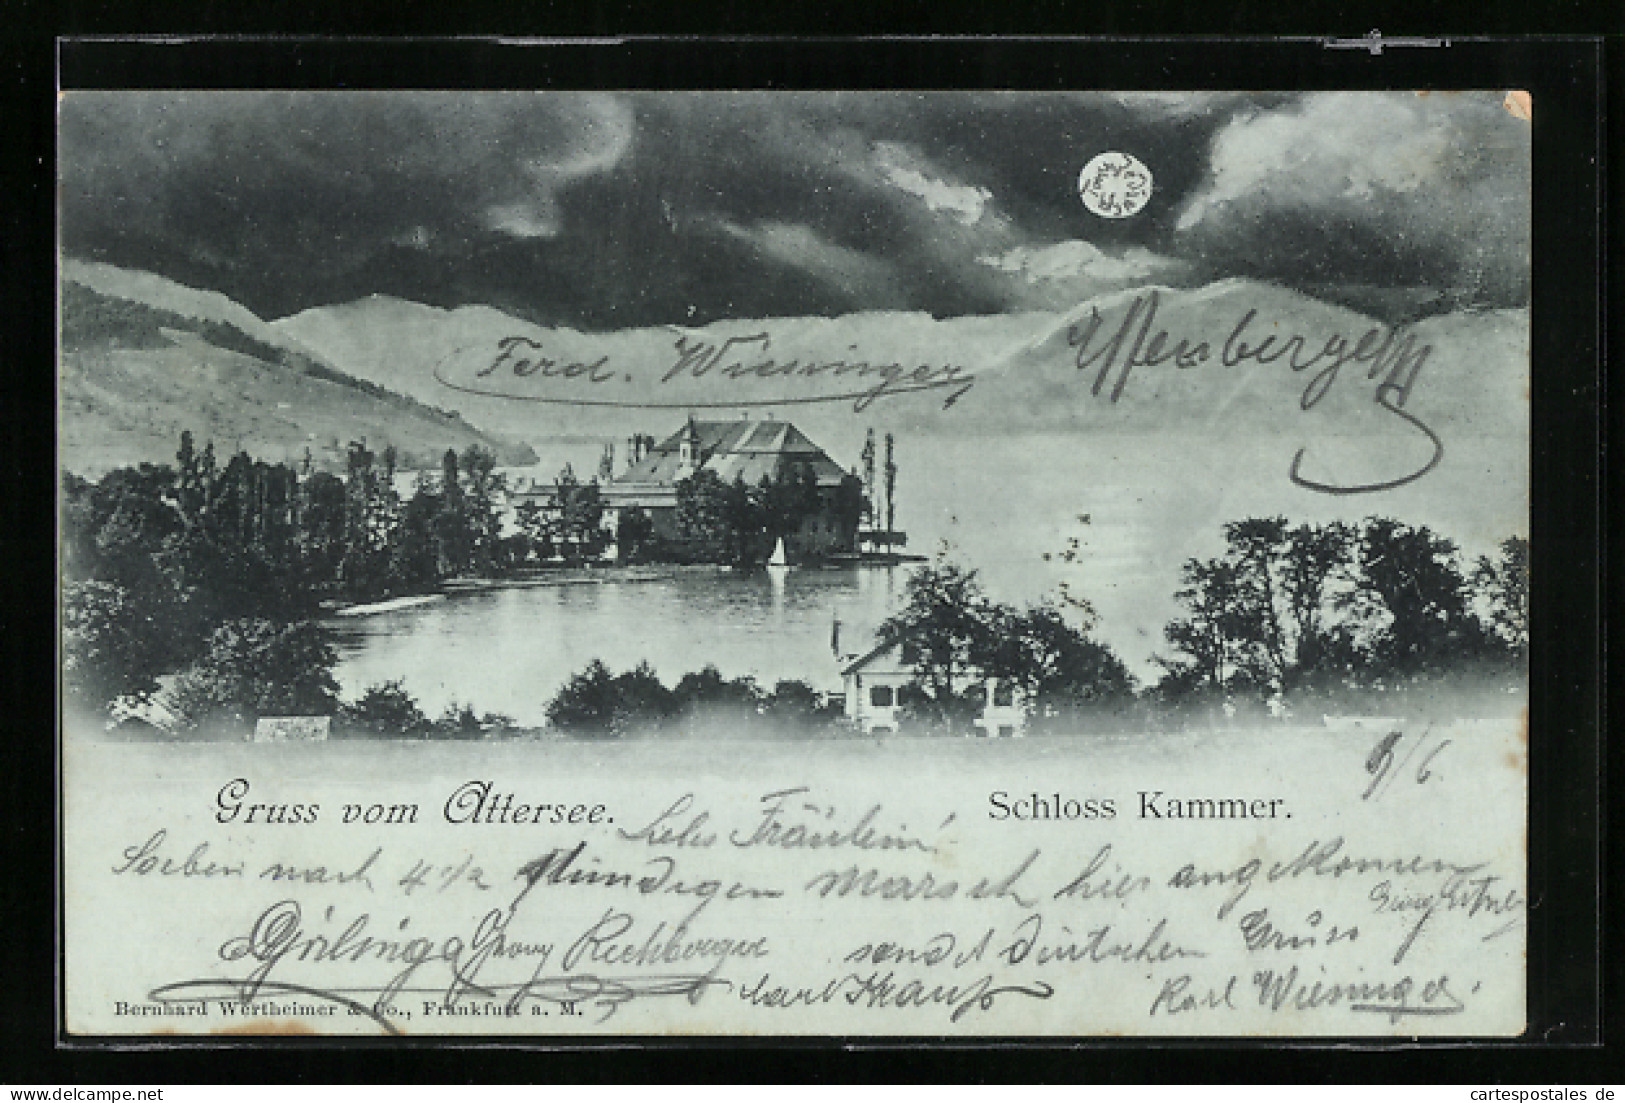 Ferd. Wiesinger
Gruss vom Attersee.
Schloss Kammer.
9/6.
Liebes Fräulein!
Soeben nach 4 1/2 stündigen Marsch hier angekommen
sendet deutschen Gruss
Georg Rechberger
Carl Krauß
Karl Wiesinger.
Bernhard Wertheimer & Co., Frankfurt a. M.
cartespostales de